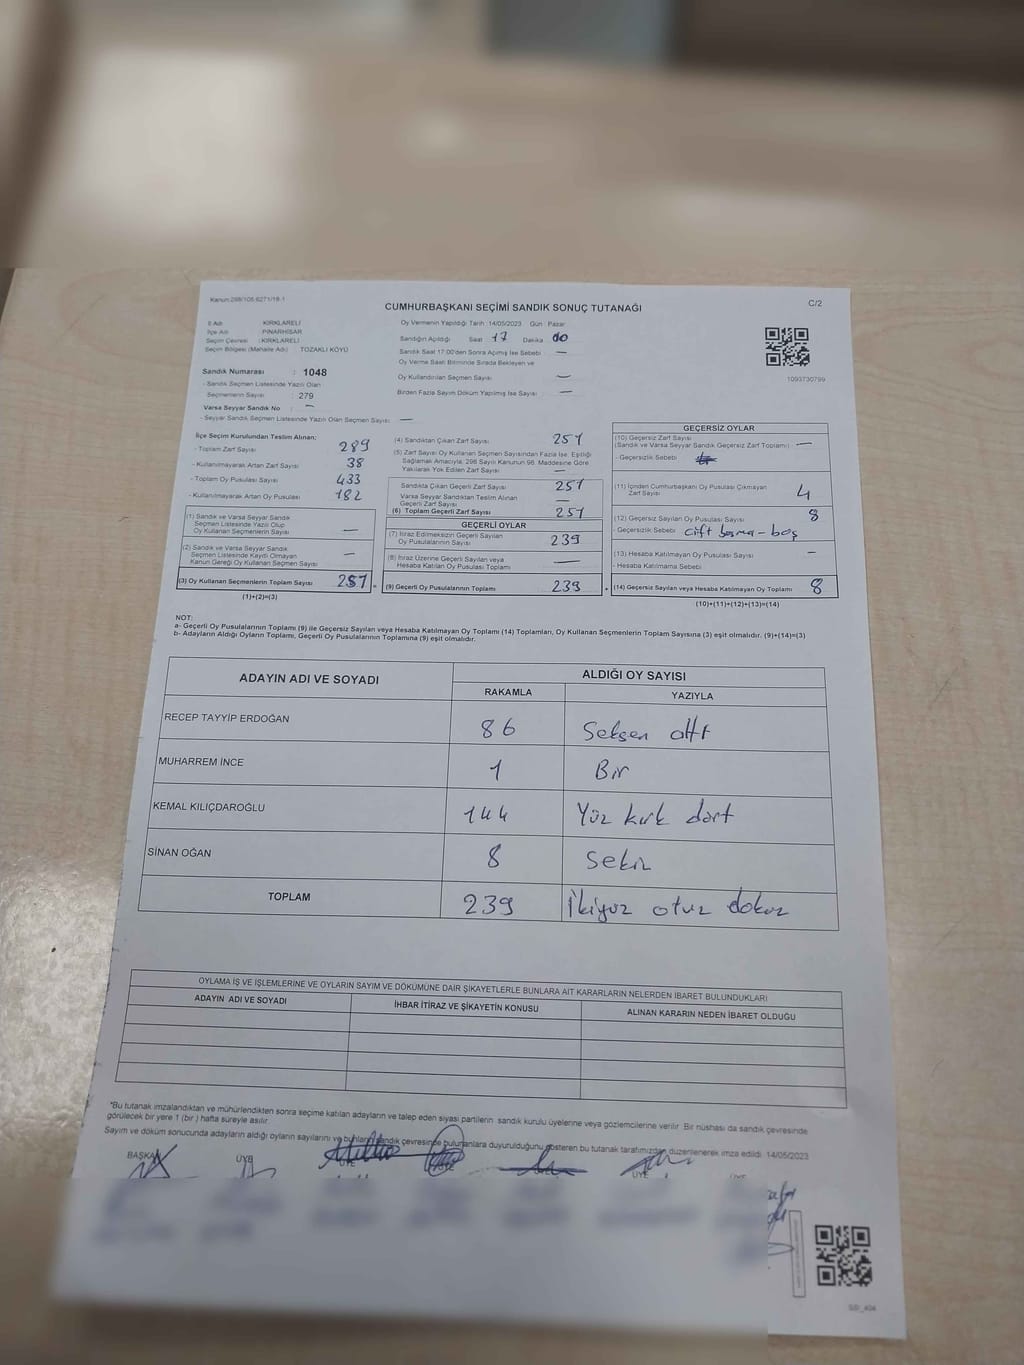 Kanun:298/105 6271/19-1
CUMHURBAŞKANI SEÇİMİ SANDIK SONUÇ TUTANAĞI
C/2
İl Adı : KIRKLARELİ
İlçe Adı : PINARHİSAR
Seçim Çevresi : KIRKLARELİ
Seçim Bölgesi (Mahalle Adı) : TOZAKLI KÖYÜ
Sandık Numarası : 1048
- Sandık Seçmen Listesinde Yazılı Olan
Seçmenlerin Sayısı : 279
Varsa Seyyar Sandık No : —
- Seyyar Sandık Seçmen Listesinde Yazılı Olan Seçmen Sayısı : —
Oy Vermenin Yapıldığı Tarih :14/05/2023 Gün : Pazar
Sandığın Açıldığı Saat 17 Dakika 00
Sandık Saat 17:00'den Sonra Açılmış İse Sebebi —
Oy Verme Saati Bitiminde Sırada Bekleyen ve
Oy Kullandırılan Seçmen Sayısı —
Birden Fazla Sayım Döküm Yapılmış İse Sayısı —
1093730799
İlçe Seçim Kurulundan Teslim Alınan:
- Toplam Zarf Sayısı 289
- Kullanılmayarak Artan Zarf Sayısı 38
- Toplam Oy Pusulası Sayısı 433
- Kullanılmayarak Artan Oy Pusulası 182
(1) Sandık ve Varsa Seyyar Sandık
Seçmen Listesinde Yazılı Olup
Oy Kullanan Seçmenlerin Sayısı —
(2) Sandık ve Varsa Seyyar Sandık
Seçmen Listesinde Kaydı Olmayan
Kanun Gereği Oy Kullanan Seçmen Sayısı —
(3) Oy Kullanan Seçmenlerin Toplam Sayısı 251
(1)+(2)=(3)
(4) Sandıktan Çıkan Zarf Sayısı 251
(5) Zarf Sayısı Oy Kullanan Seçmen Sayısından Fazla İse, Eşitliği
Sağlamak Amacıyla, 298 Sayılı Kanunun 98. Maddesine Göre
Yakılarak Yok Edilen Zarf Sayısı —
Sandıkta Çıkan Geçerli Zarf Sayısı 251
Varsa Seyyar Sandıktan Teslim Alınan
Geçerli Zarf Sayısı —
(6) Toplam Geçerli Zarf Sayısı 251
GEÇERLİ OYLAR
(7) İtiraz Edilmeksizin Geçerli Sayılan
Oy Pusulalarının Sayısı 239
(8) İtiraz Üzerine Geçerli Sayılan veya
Hesaba Katılan Oy Pusulaları Toplamı —
(9) Geçerli Oy Pusulalarının Toplamı 239
GEÇERSİZ OYLAR
(10) Geçersiz Zarf Sayısı
(Sandık ve Varsa Seyyar Sandık Geçersiz Zarf Toplamı) —
- Geçersizlik Sebebi
(11) İçinden Cumhurbaşkanı Oy Pusulası Çıkmayan
Zarf Sayısı 4
(12) Geçersiz Sayılan Oy Pusulası Sayısı 8
- Geçersizlik Sebebi : çift basma - boş
(13) Hesaba Katılmayan Oy Pusulası Sayısı —
- Hesaba Katılmama Sebebi
(14) Geçersiz Sayılan veya Hesaba Katılmayan Oy Toplamı 8
(10)+(11)+(12)+(13)=(14)
NOT:
a- Geçerli Oy Pusulalarının Toplamı (9) ile Geçersiz Sayılan veya Hesaba Katılmayan Oy Toplamı (14) Toplamları, Oy Kullanan Seçmenlerin Toplam Sayısına (3) eşit olmalıdır. (9)+(14)=(3)
b- Adayların Aldığı Oyların Toplamı, Geçerli Oy Pusulalarının Toplamına (9) eşit olmalıdır.
ADAYIN ADI VE SOYADI ALDIĞI OY SAYISI
RAKAMLA YAZIYLA
RECEP TAYYİP ERDOĞAN 86 Seksen altı
MUHARREM İNCE 1 Bir
KEMAL KILIÇDAROĞLU 144 Yüz kırk dört
SİNAN OĞAN 8 Sekiz
TOPLAM 239 İkiyüz otuz dokuz
OYLAMA İŞ VE İŞLEMLERİNE VE OYLARIN SAYIM VE DÖKÜMÜNE DAİR ŞİKAYETLERLE BUNLARA AİT KARARLARIN NELERDEN İBARET BULUNDUKLARI
ADAYIN ADI VE SOYADI İHBAR İTİRAZ VE ŞİKAYETİN KONUSU ALINAN KARARIN NEDEN İBARET OLDUĞU
*Bu tutanak imzalandıktan ve mühürlendikten sonra seçime katılan adayların ve talep eden siyasi partilerin sandık kurulu üyelerine veya gözlemcilerine verilir. Bir nüshası da sandık çevresinde
görülecek bir yere 1 (bir) hafta süreyle asılır.
Sayım ve döküm sonucunda adayların aldığı oyların sayılarını ve bunların sandık çevresinde bulunanlara duyurulduğunu gösteren bu tutanak tarafımızdan düzenlenerek imza edildi. 14/05/2023
BAŞKAN ÜYE ÜYE ÜYE ÜYE ÜYE ÜYE